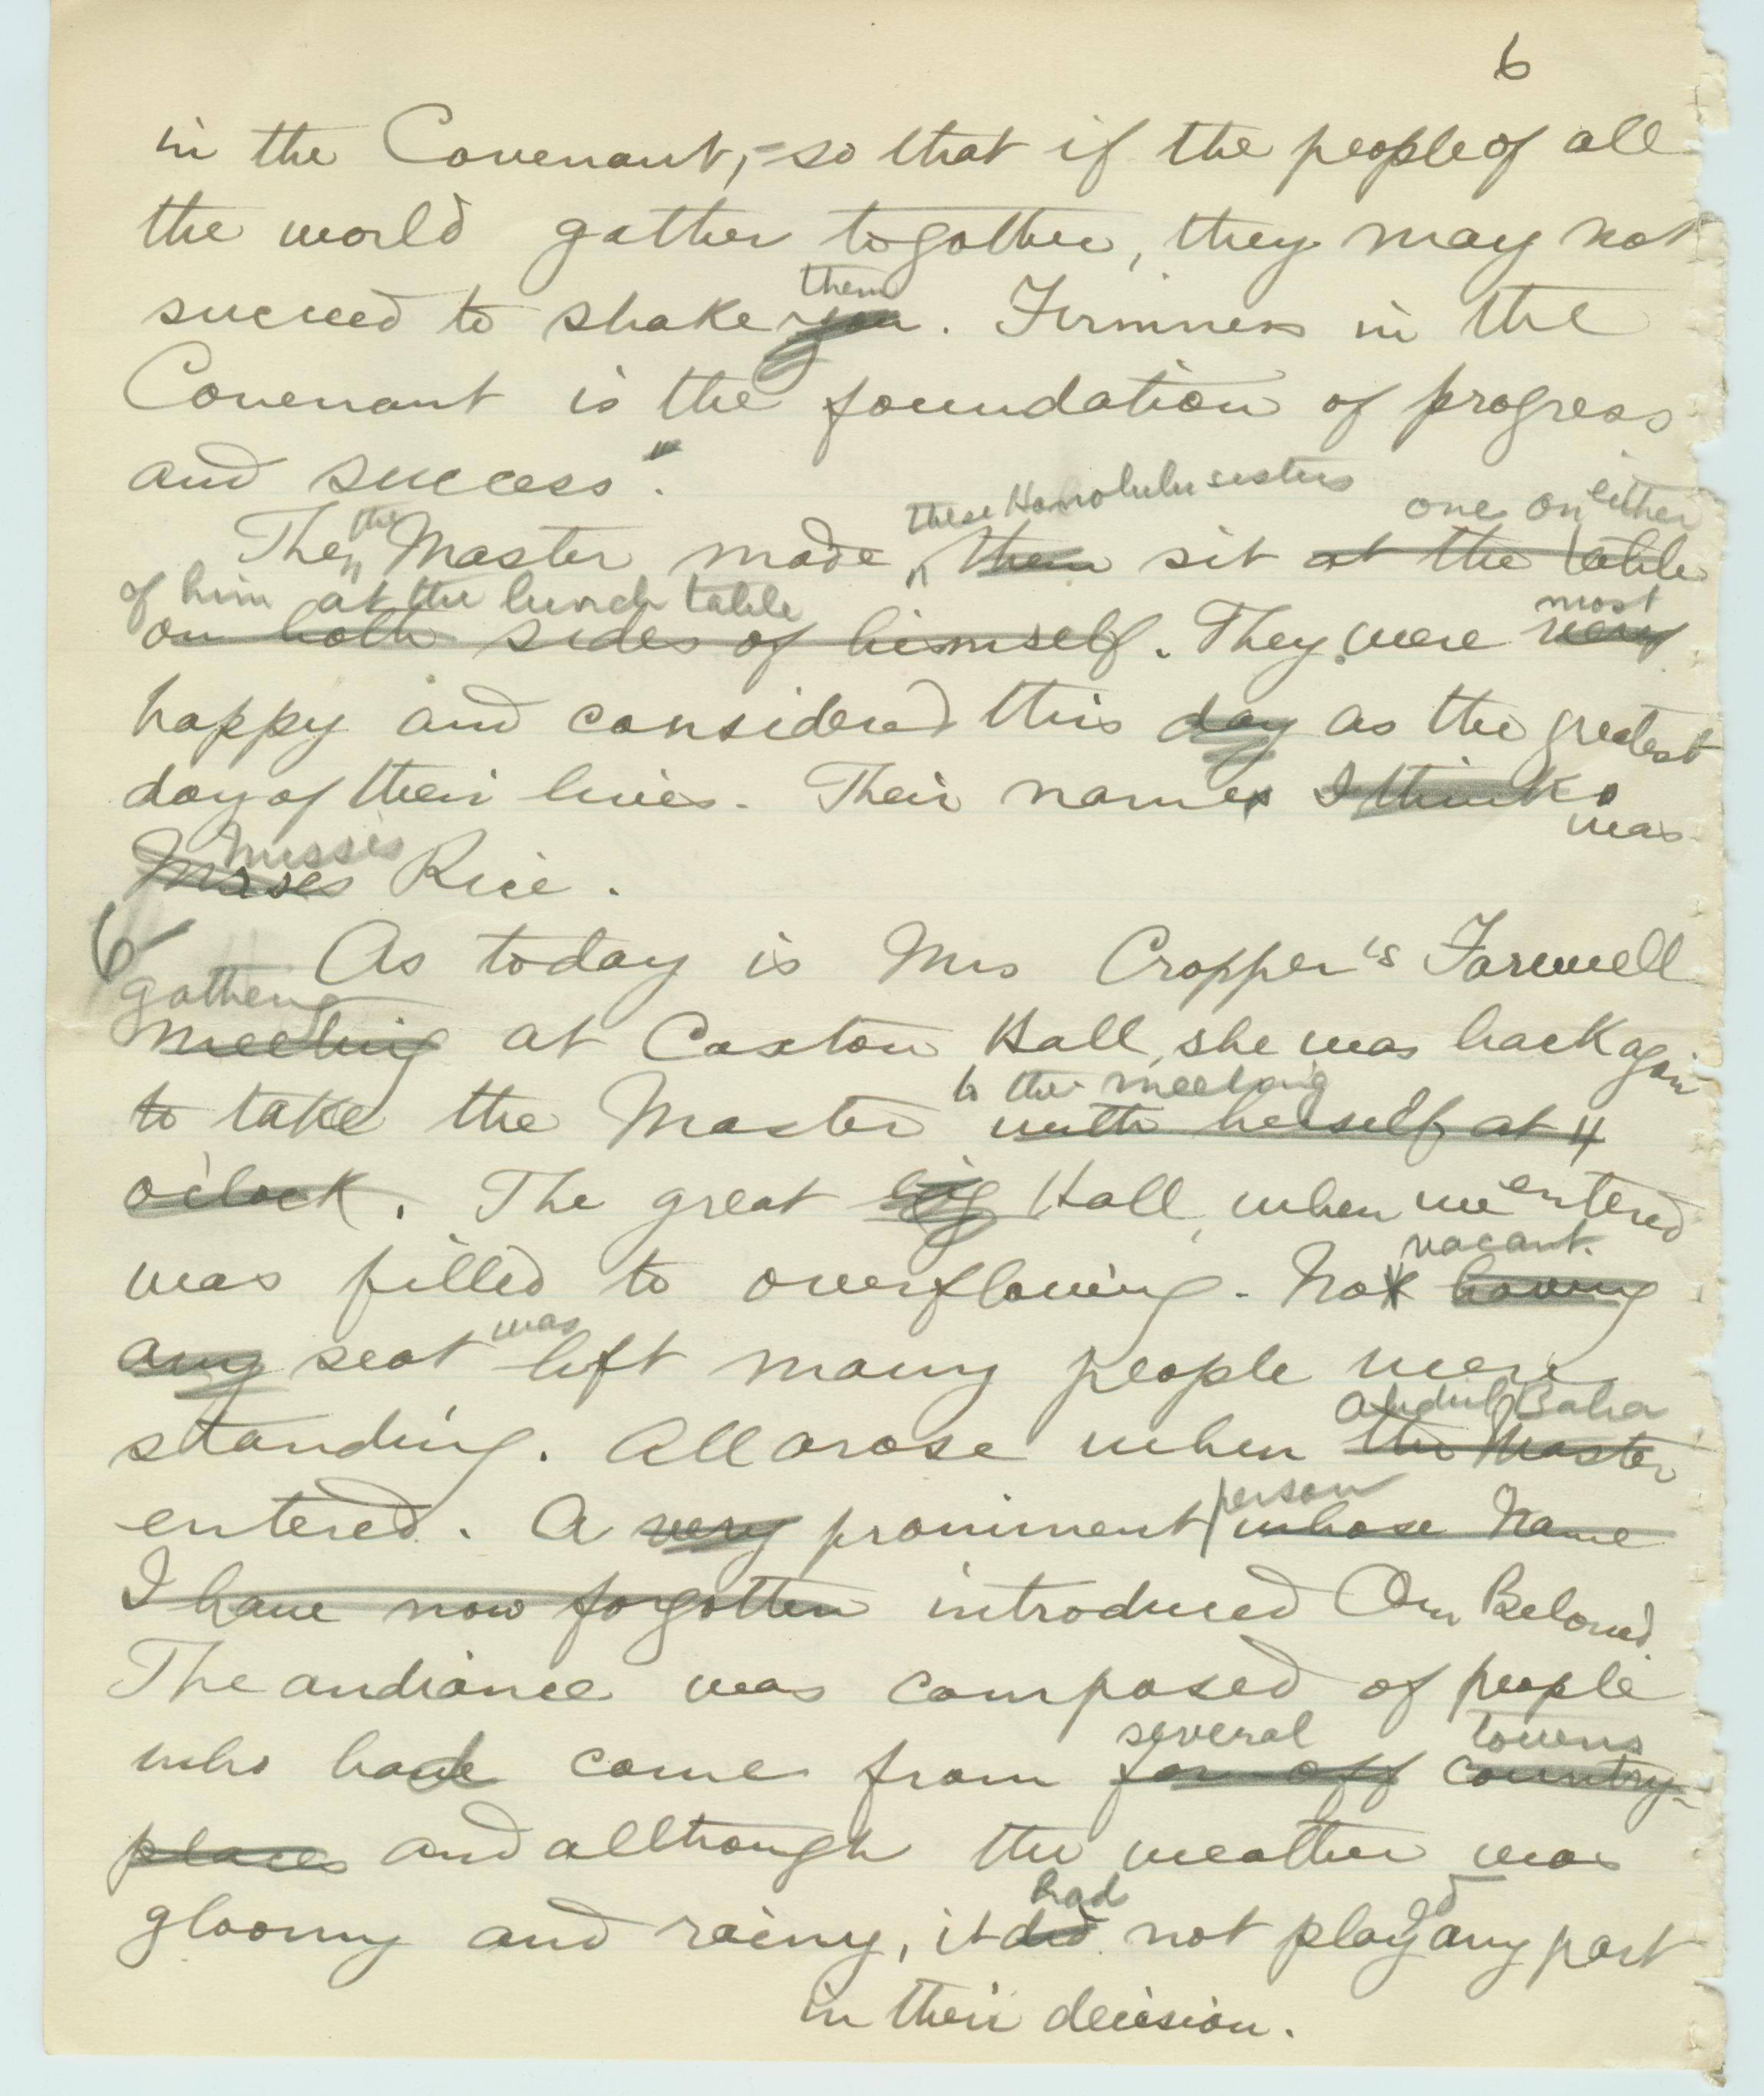 6
in the Covenant, - so that if the people of all
the world gather togather, they may not
them
succeed to shake you. Firmness in the
Covenant is the foundation of progress
and success".
these Honolulu sisters one on either
the
Then Master made them sit at the table
of him at the lunch table
on both sides of himself. They were very
most
happy and considered this day as the greatest
day of their lives. Their names I think
was
Misses
Rice.
6 As today is Mrs Cropper's Farwell
gathering
meeting at Caxton Hall, she was back again
to the meeting
to take the Master with herself at 4
o'clock. The great big Hall, when we entered
vacant
was filled to overflowing. Not having
was
any seat left many people were
Abdul Baha
standing. All arose when the Master
person
entered. A very prominent whose name
I have now forgotten introduced Our Beloved.
The audiance was composed of people
several towns
who had come from far off country-
places and allthough the weather was
had ed
gloomy and rainy, it did not play any part
in their decision.